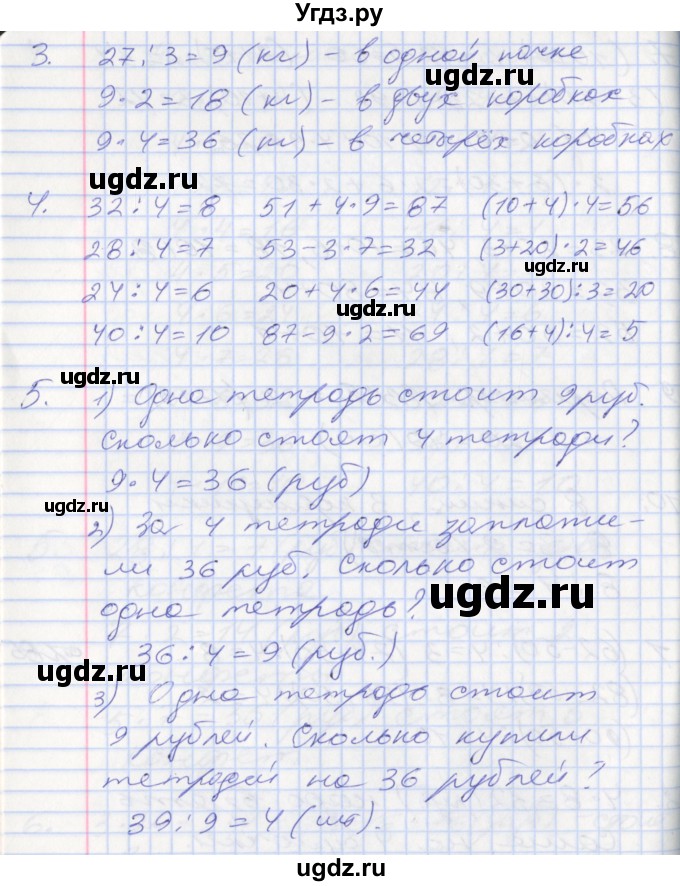 Угдз.ру
3. 27:3=9 (кг) - в одной пачке
9·2=18 (кг) - в двух коробках
9·4=36 (кг) - в четырёх коробках
4. 32:4=8 51+4·9=87 (10+4)·4=56
28:4=7 53-3·7=32 (3+20)·2=46
24:4=6 20+4·6=44 (30+30):3=20
40:4=10 87-9·2=69 (16+4):4=5
5. 1) Одна тетрадь стоит 9 руб.
Сколько стоят 4 тетради?
9·4=36 (руб)
2) За 4 тетради заплати-
ли 36 руб. Сколько стоит
одна тетрадь?
36:4=9 (руб.)
3) Одна тетрадь стоит
9 рублей. Сколько купили
тетрадей на 36 рублей?
39:9=4 (шт).
ugdz.ru
ugdz.ru
ugdz.ru
ugdz.ru
ugdz.ru
ugdz.ru
ugdz.ru
ugdz.ru
ugdz.ru
ugdz.ru
ugdz.ru
ugdz.ru